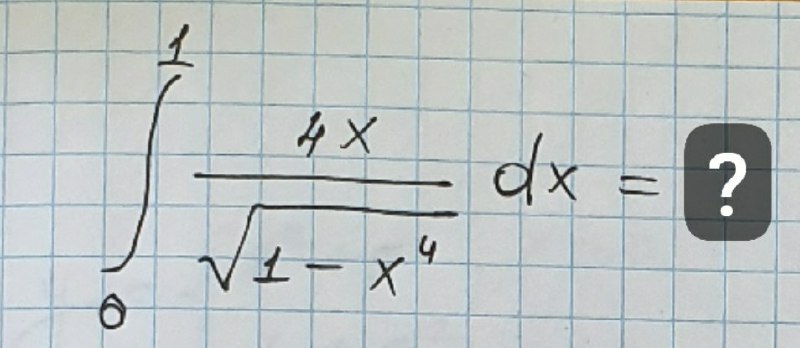 ∫₀¹ 4x / √(1 − x⁴) dx = ?